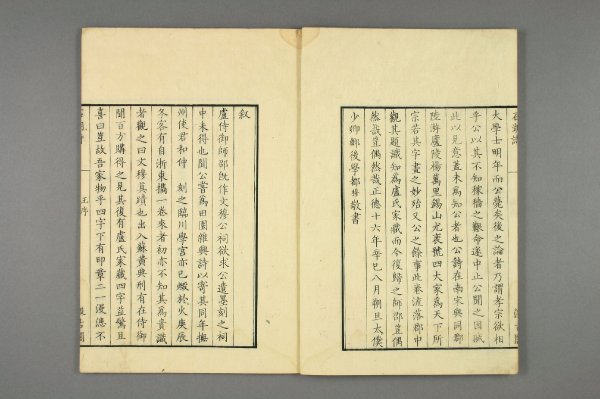 大學士明年而公薨矣後之論者乃謂孝宗欲相
乎公以其不知稼穡之艱命遂中止公聞之因賦
此以見意蓋未為知公者也公詩在南宋與同郡
陸游廬陵楊萬里錫山尤袤號四大家為天下所
宗若其字畫之妙特又公之餘事此卷流落郡中
觀其題識知為盧氏家藏而今復歸之師邵豈偶
然哉豈偶然哉正德十六年辛巳八月朔旦太僕
少卿郡後學都穆敬書
叙
盧侍御師邵既作文穆公祠欲求公遺墨刻之祠
中未得也聞公嘗為田園雜興詩以寄其同年撫
州使君和仲 刻之臨川學宮亦已燬於火庚辰
冬客有自浙東攜一卷來者初亦不知其為貴識
者觀之曰文穆真蹟也出入蘇黄典刑有在侍御
聞百方購得之見其後有盧氏家藏四字益驚且
喜曰豈故吾家物乎四字下有印章二一漫漶不
王序